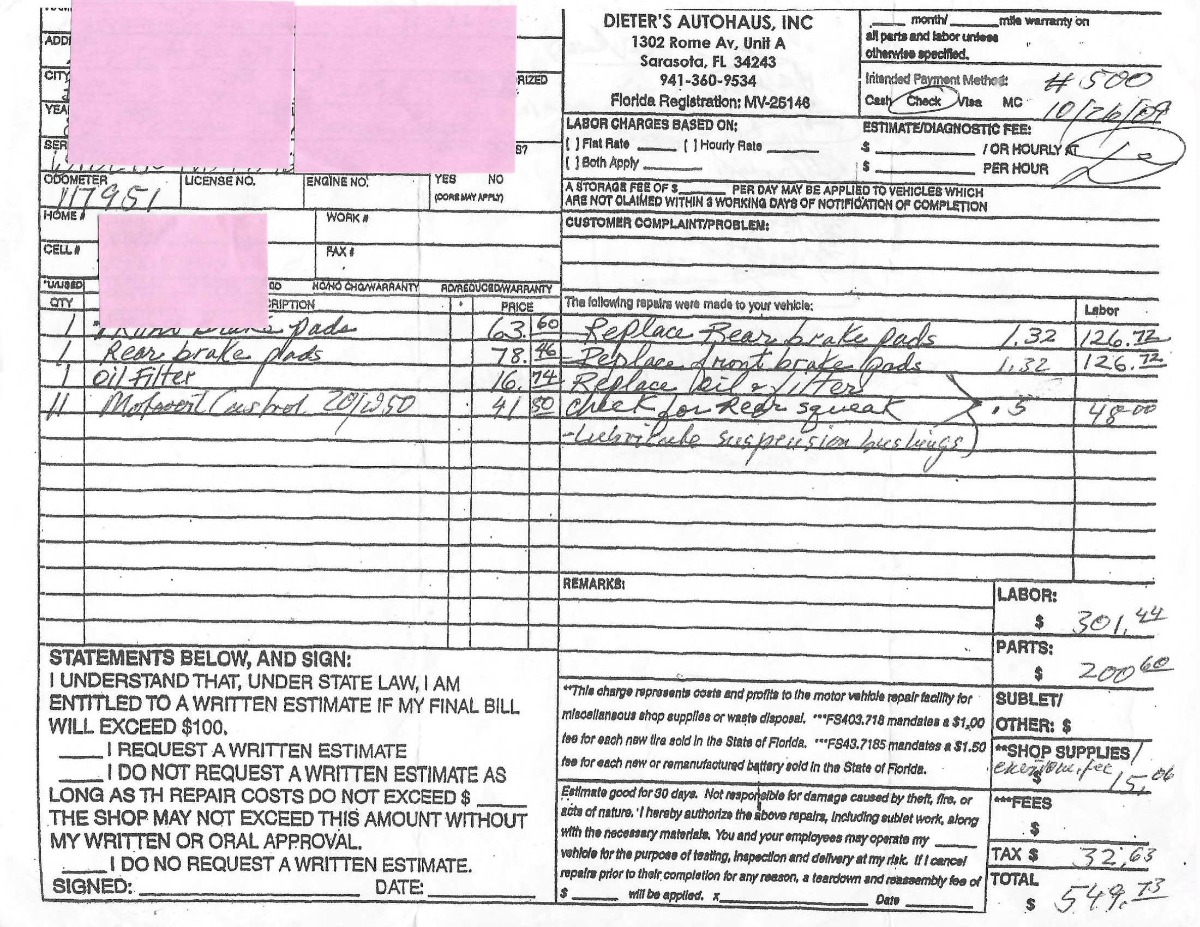 DIETER'S AUTOHAUS, INC
1302 Rome Av, Unit A
Sarasota, FL 34243
941-360-9534
Florida Registration: MV-25146
month/ mile warranty on
all parts and labor unless
otherwise specified.
Intended Payment Method: # 500
Cash Check Visa MC 10/26/09
ADD
CITY
RIZED
YEA
SER
S?
ODOMETER
117951
LICENSE NO.
ENGINE NO.
YES NO
(CORE MAY APPLY)
LABOR CHARGES BASED ON:
[ ] Flat Rate ____ [ ] Hourly Rate ____
[ ] Both Apply ____
ESTIMATE/DIAGNOSTIC FEE:
$ ____ / OR HOURLY AT
$ ____ PER HOUR
A STORAGE FEE OF $____ PER DAY MAY BE APPLIED TO VEHICLES WHICH
ARE NOT CLAIMED WITHIN 3 WORKING DAYS OF NOTIFICATION OF COMPLETION
HOME #
WORK #
CELL #
FAX #
CUSTOMER COMPLAINT/PROBLEM:
*U/USED NC/NO CHG/WARRANTY RD/REDUCED/WARRANTY
QTY CRIPTION * PRICE
1 brake pads 63.60
1 Rear brake pads 78.46
1 Oil Filter 16.74
11 Castrol 20W50 41.80
The following repairs were made to your vehicle: Labor
Replace Rear brake pads 1.32 126.72
- Replace front brake pads 1.32 126.72
- Replace Oil & filter
Check for Rear squeak .5 48.00
- Lubricate suspension bushings
REMARKS:
LABOR:
$ 301.44
PARTS:
$ 200.60
SUBLET/
OTHER: $
**SHOP SUPPLIES/
fee
$ 15.06
***FEES
$
TAX $ 32.63
TOTAL
$ 549.73
STATEMENTS BELOW, AND SIGN:
I UNDERSTAND THAT, UNDER STATE LAW, I AM
ENTITLED TO A WRITTEN ESTIMATE IF MY FINAL BILL
WILL EXCEED $100.
____ I REQUEST A WRITTEN ESTIMATE
____ I DO NOT REQUEST A WRITTEN ESTIMATE AS
LONG AS TH REPAIR COSTS DO NOT EXCEED $ ____
THE SHOP MAY NOT EXCEED THIS AMOUNT WITHOUT
MY WRITTEN OR ORAL APPROVAL.
____ I DO NO REQUEST A WRITTEN ESTIMATE.
SIGNED: ____ DATE: ____
**This charge represents costs and profits to the motor vehicle repair facility for
miscellaneous shop supplies or waste disposal. ***FS403.718 mandates a $1.00
fee for each new tire sold in the State of Florida. ***FS43.7185 mandates a $1.50
fee for each new or remanufactured battery sold in the State of Florida.
Estimate good for 30 days. Not responsible for damage caused by theft, fire, or
acts of nature. I hereby authorize the above repairs, including sublet work, along
with the necessary materials. You and your employees may operate my ____
vehicle for the purpose of testing, inspection and delivery at my risk. If I cancel
repairs prior to their completion for any reason, a teardown and reassembly fee of
$ ____ will be applied. x____ Date ____